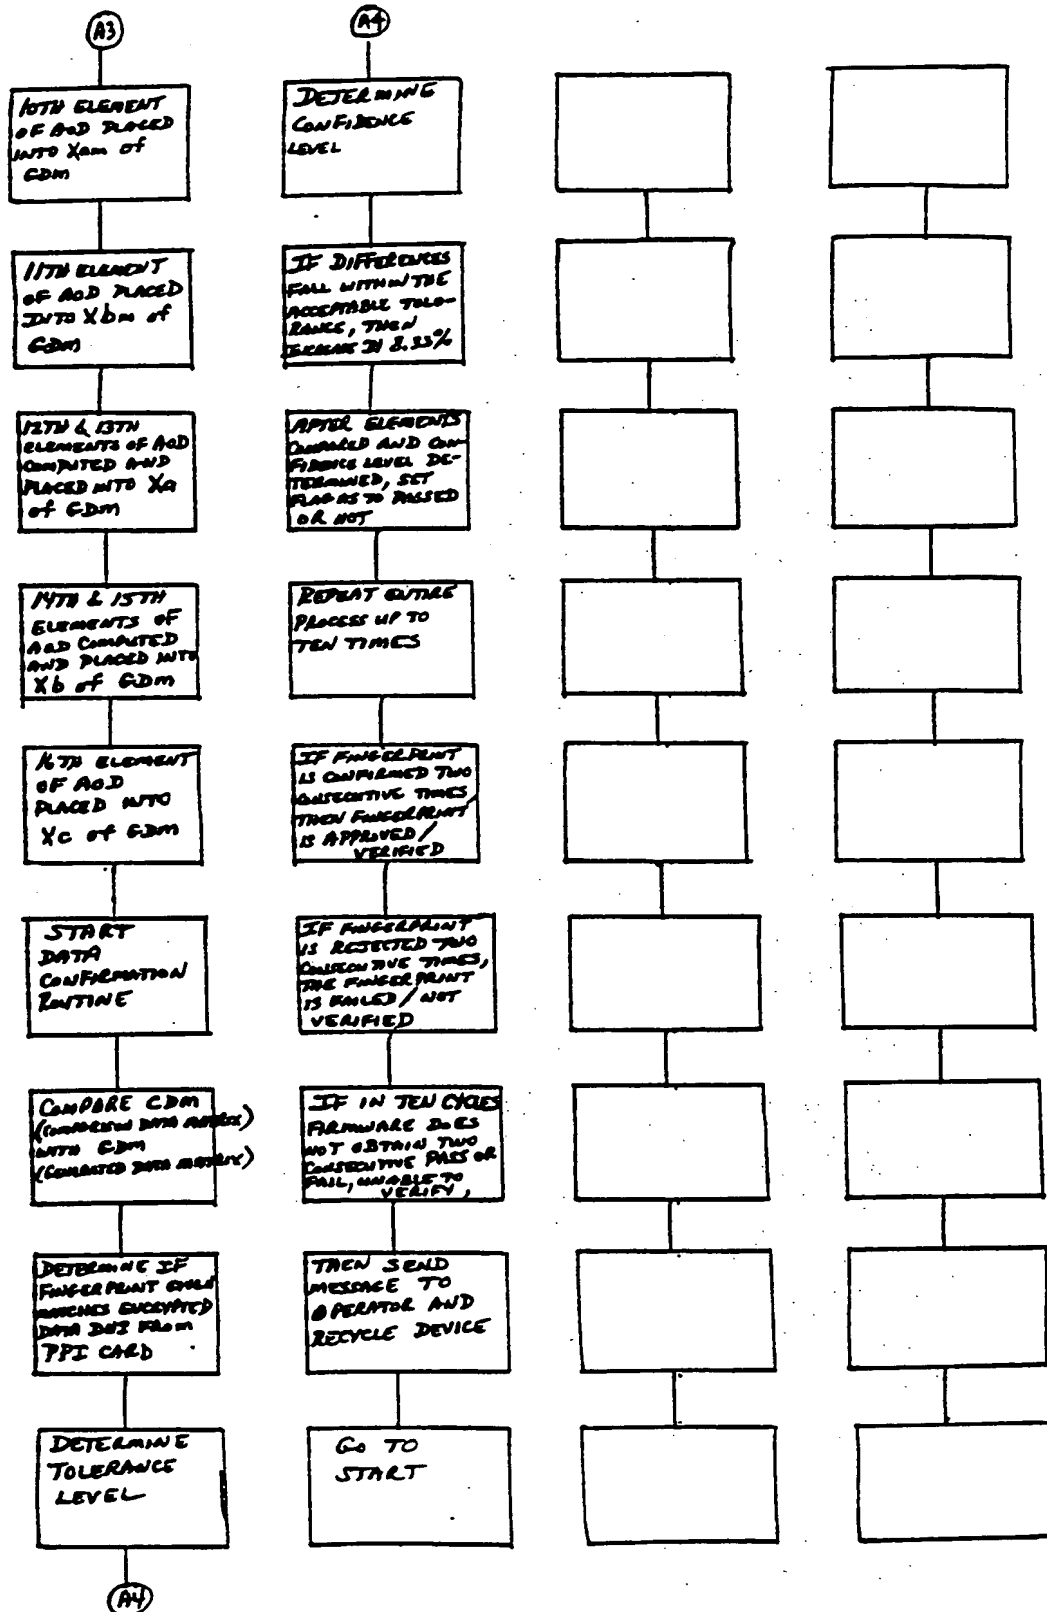 A3
10TH ELEMENT
OF AOD PLACED
INTO Xam of
GDM
11TH ELEMENT
OF AOD PLACED
INTO Xbm of
GDM
12TH & 13TH
ELEMENTS OF AOD
COMPUTED AND
PLACED INTO Xa
of GDM
14TH & 15TH
ELEMENTS OF
AOD COMPUTED
AND PLACED INTO
Xb of GDM
16TH ELEMENT
OF AOD
PLACED INTO
Xc of GDM
START
DATA
CONFIRMATION
ROUTINE
COMPARE CDM
(COMPARISON DATA MATRIX)
WITH GDM
(GENERATED DATA MATRIX)
DETERMINE IF
FINGERPRINT
MATCHES ENCRYPTED
DATA FROM
PPI CARD
DETERMINE
TOLERANCE
LEVEL
A4
A4
DETERMINE
CONFIDENCE
LEVEL
IF DIFFERENCES
FALL WITHIN THE
ACCEPTABLE TOLO-
RANCE, THEN
INCREASE BY 8.33%
AFTER ELEMENTS
COMPARED AND CON-
FIDENCE LEVEL DE-
TERMINED, SET
FLAG AS TO PASSED
OR NOT
REPEAT ENTIRE
PROCESS UP TO
TEN TIMES
IF FINGERPRINT
IS CONFIRMED TWO
CONSECUTIVE TIMES
THEN FINGERPRINT
IS APPROVED/
VERIFIED
IF FINGERPRINT
IS REJECTED TWO
CONSECUTIVE TIMES,
THE FINGERPRINT
IS FAILED/NOT
VERIFIED
IF IN TEN CYCLES
FIRMWARE DOES
NOT OBTAIN TWO
CONSECUTIVE PASS OR
FAIL, UNABLE TO
VERIFY,
THEN SEND
MESSAGE TO
OPERATOR AND
RECYCLE DEVICE
GO TO
START